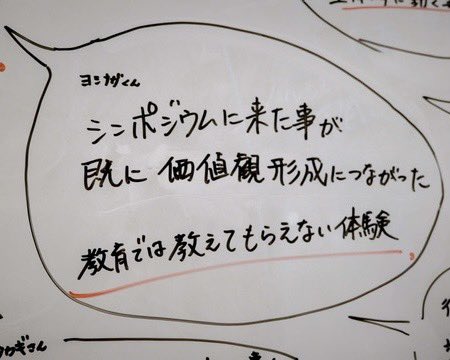 ヨシナガくん
シンポジウムに来た事が
既に価値観形成につながった
教育では教えてもらえない体験